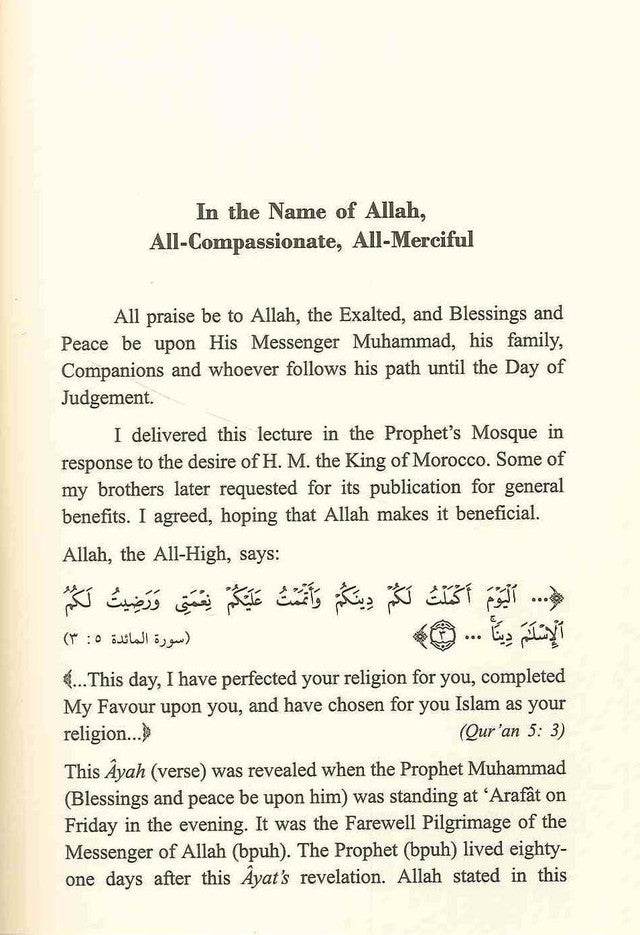 In the Name of Allah,
All-Compassionate, All-Merciful
All praise be to Allah, the Exalted, and Blessings and
Peace be upon His Messenger Muhammad, his family,
Companions and whoever follows his path until the Day of
Judgement.
I delivered this lecture in the Prophet's Mosque in
response to the desire of H. M. the King of Morocco. Some of
my brothers later requested for its publication for general
benefits. I agreed, hoping that Allah makes it beneficial.
Allah, the All-High, says:
﴿... ٱلْيَوْمَ أَكْمَلْتُ لَكُمْ دِينَكُمْ وَأَتْمَمْتُ عَلَيْكُمْ نِعْمَتِى وَرَضِيتُ لَكُمُ
ٱلْإِسْلَـٰمَ دِينًاۚ ... ٣﴾ (سورة المائدة ٥ : ٣)
﴾...This day, I have perfected your religion for you, completed
My Favour upon you, and have chosen for you Islam as your
religion...﴿ (Qur'an 5: 3)
This Âyah (verse) was revealed when the Prophet Muhammad
(Blessings and peace be upon him) was standing at ‘Arafât on
Friday in the evening. It was the Farewell Pilgrimage of the
Messenger of Allah (bpuh). The Prophet (bpuh) lived eighty-
one days after this Âyat's revelation. Allah stated in this